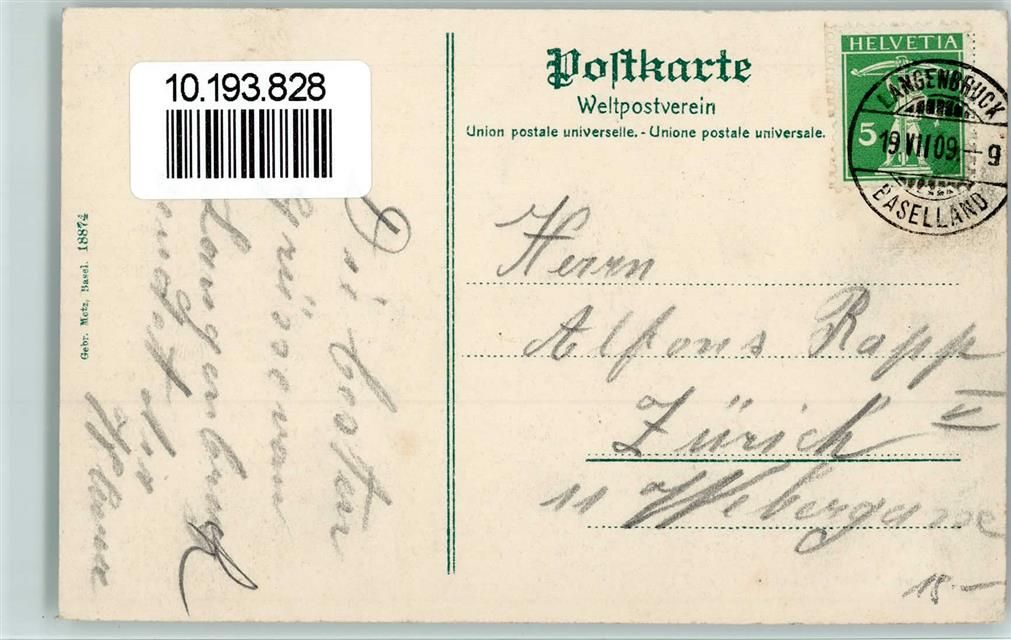 10.193.828
Postkarte
Weltpostverein
Union postale universelle. - Unione postale universale.
HELVETIA
5
LANGENBRUCK
19.VII.09.-9
BASELLAND
Herrn
Alfons Rapp
Zürich V
11 Webergasse
15.-
Die besten
Grüsse von
Langenbruck
sendet dir
Gebr. Metz, Basel. 18874